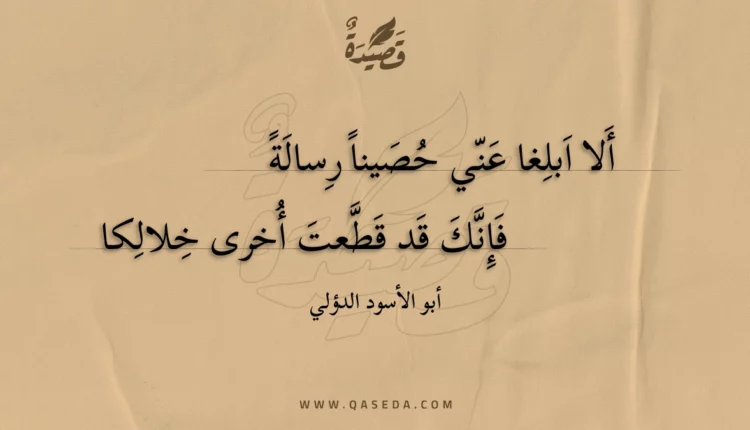 قَصِيْدَةٌ
أَلا اَبلِغا عَنّي حُصَيناً رِسالَةً
فَإِنَّكَ قَد قَطَّعتَ أُخرى خِلالِكا
أبو الأسود الدؤلي
WWW.QASEDA.COM